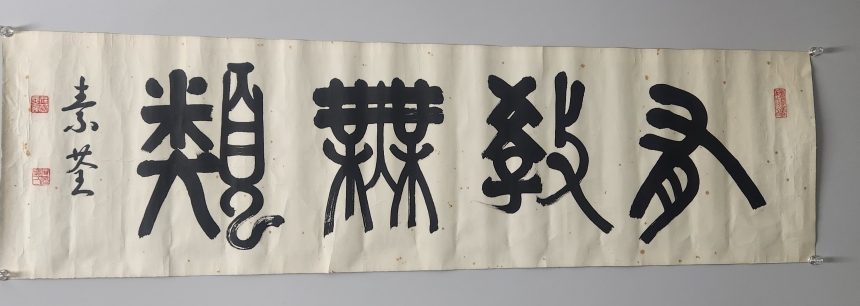 有教無類
素荃